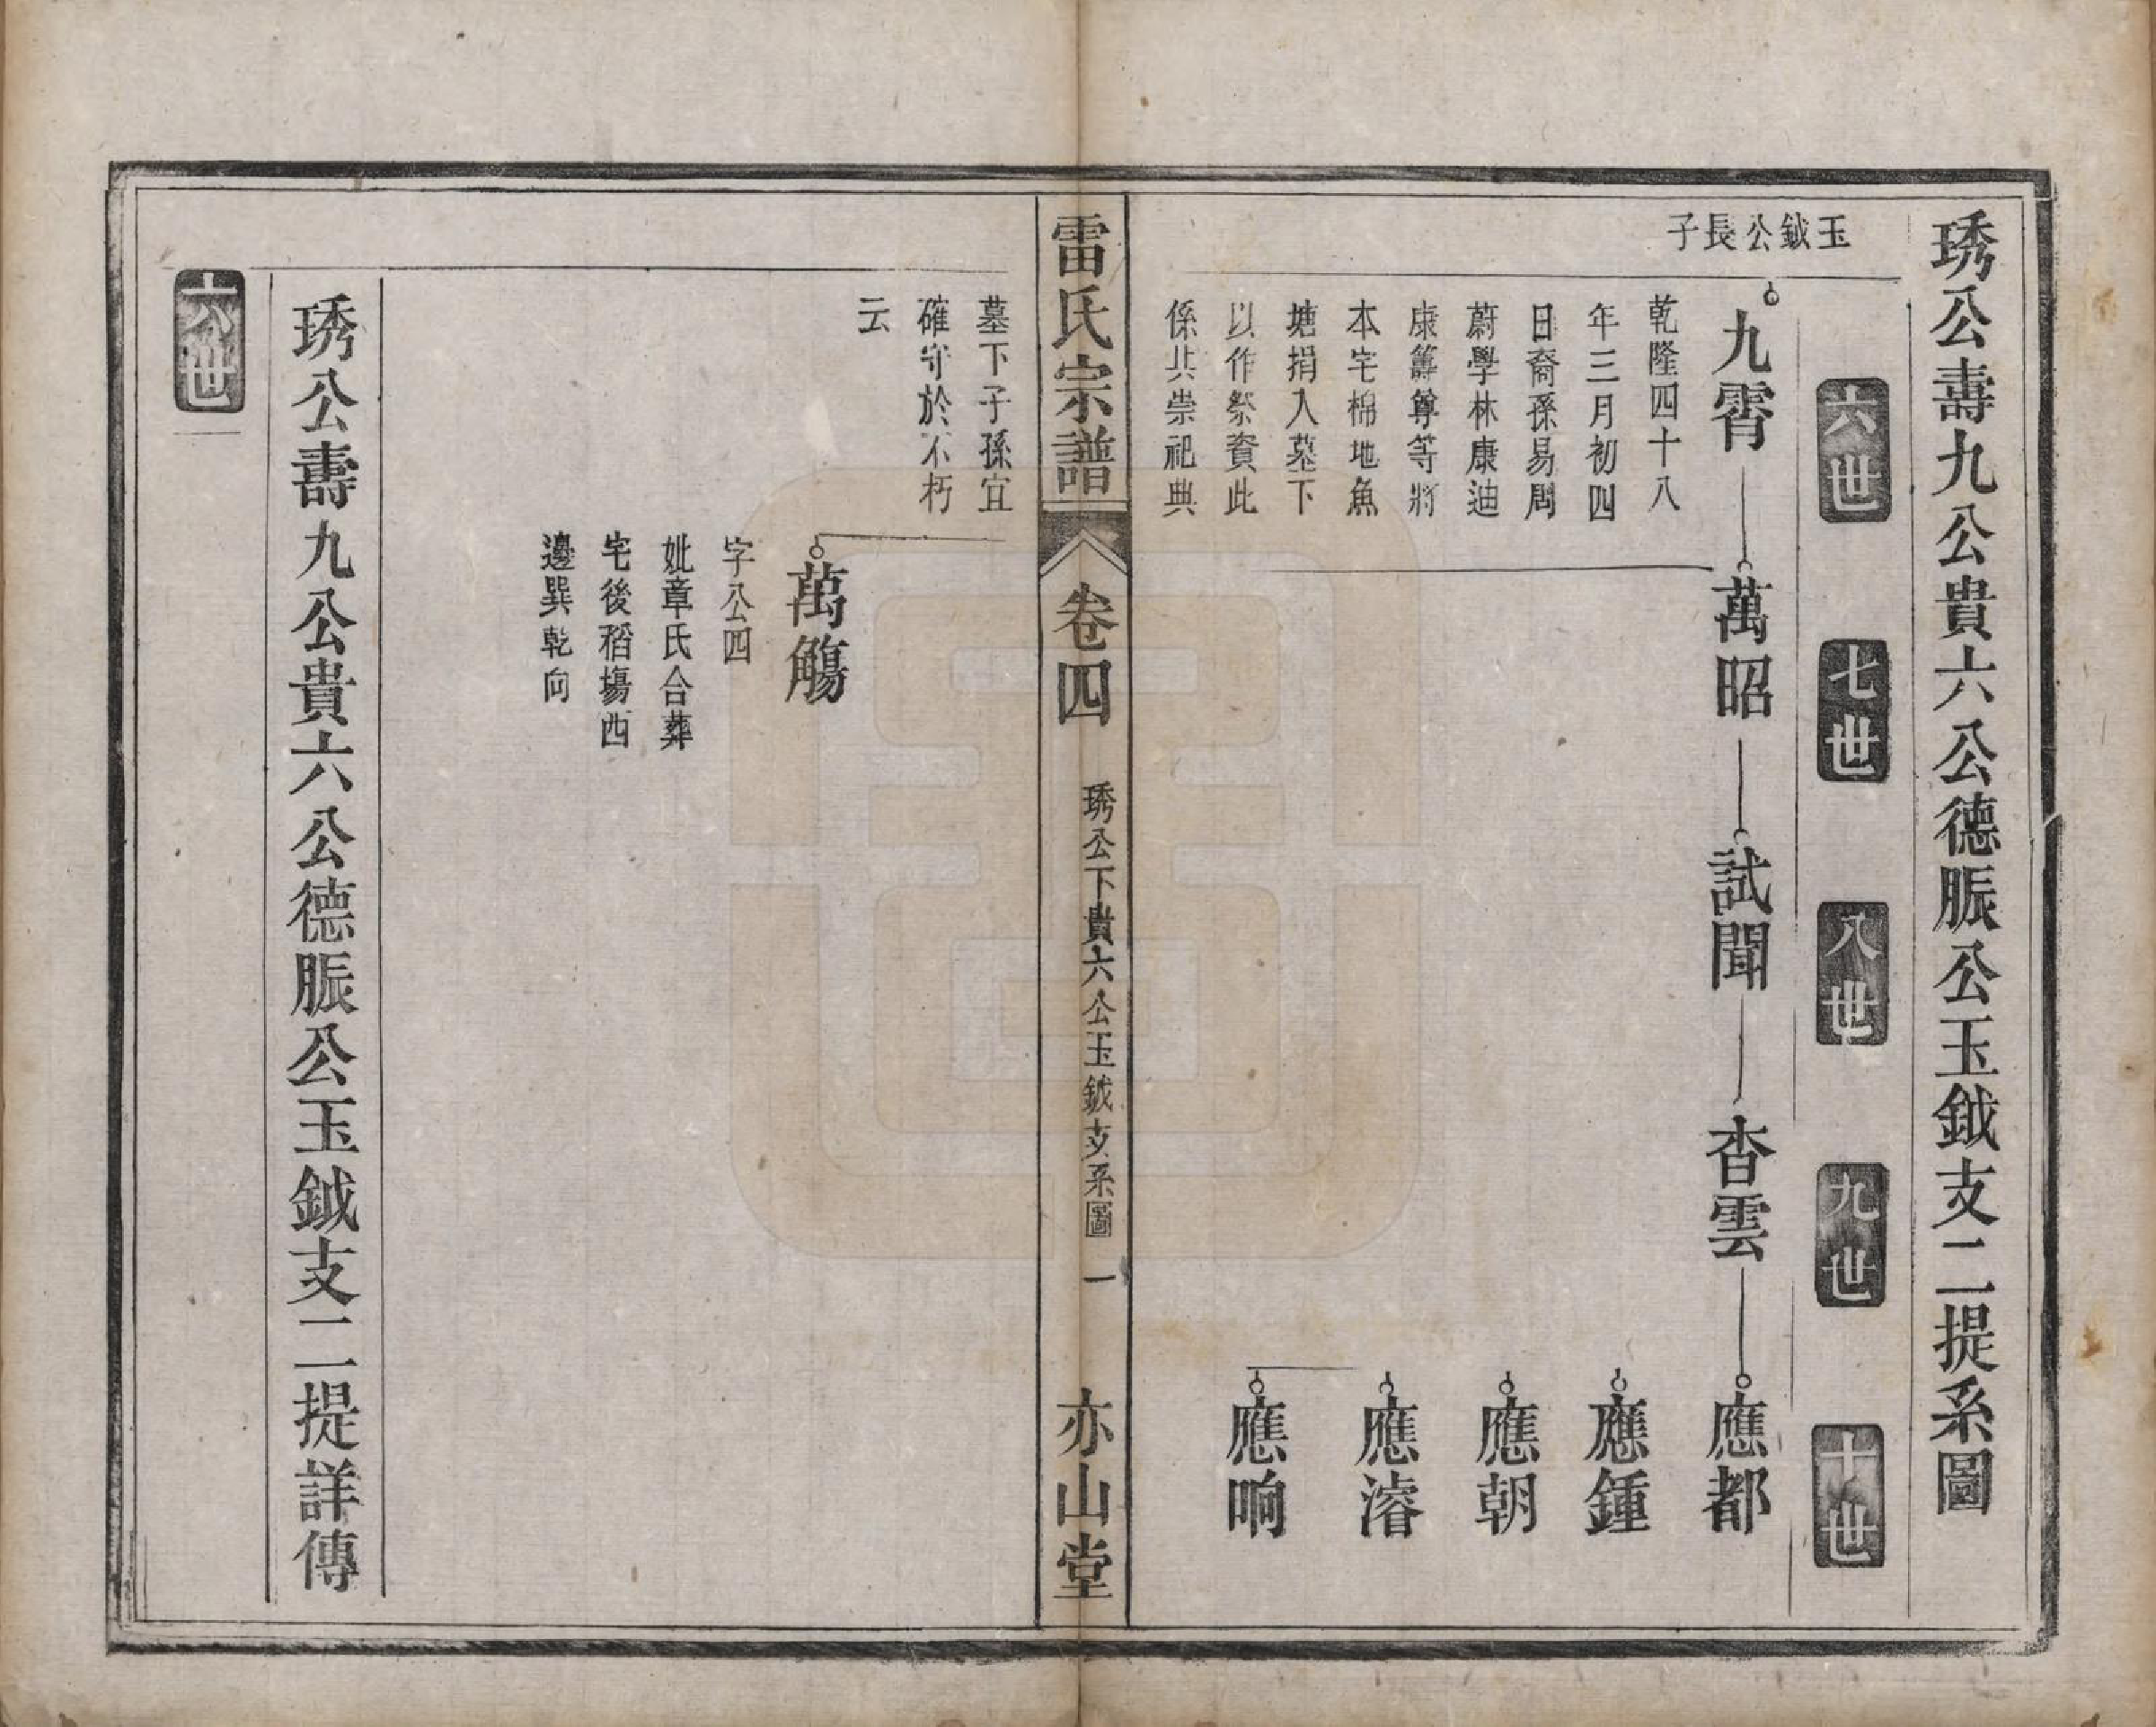 琇公壽九公貴六公德脤公玉鉞支二提系圖
六世
七世
八世
九世
十世
玉鉞公長子
九霄
萬昭
試聞
杳雲
應都
乾隆四十八
年三月初四
日裔孫易周
蔚學林康迪
康籌尊等將
本宅棉地魚
塘捐入墓下
以作祭資此
係共崇祀典
應鍾
應朝
應濬
應晌
雷氏宗譜
卷四
琇公下貴六公玉鉞支系圖
一
亦山堂
墓下子孫宜
確守於不朽
云
萬觴
字公四
妣章氏合葬
宅後稻塲西
邊巽乾向
琇公壽九公貴六公德脤公玉鉞支二提詳傳
六世